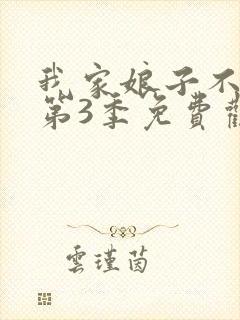 我家娘子不
第3季免費
雲瑾茵